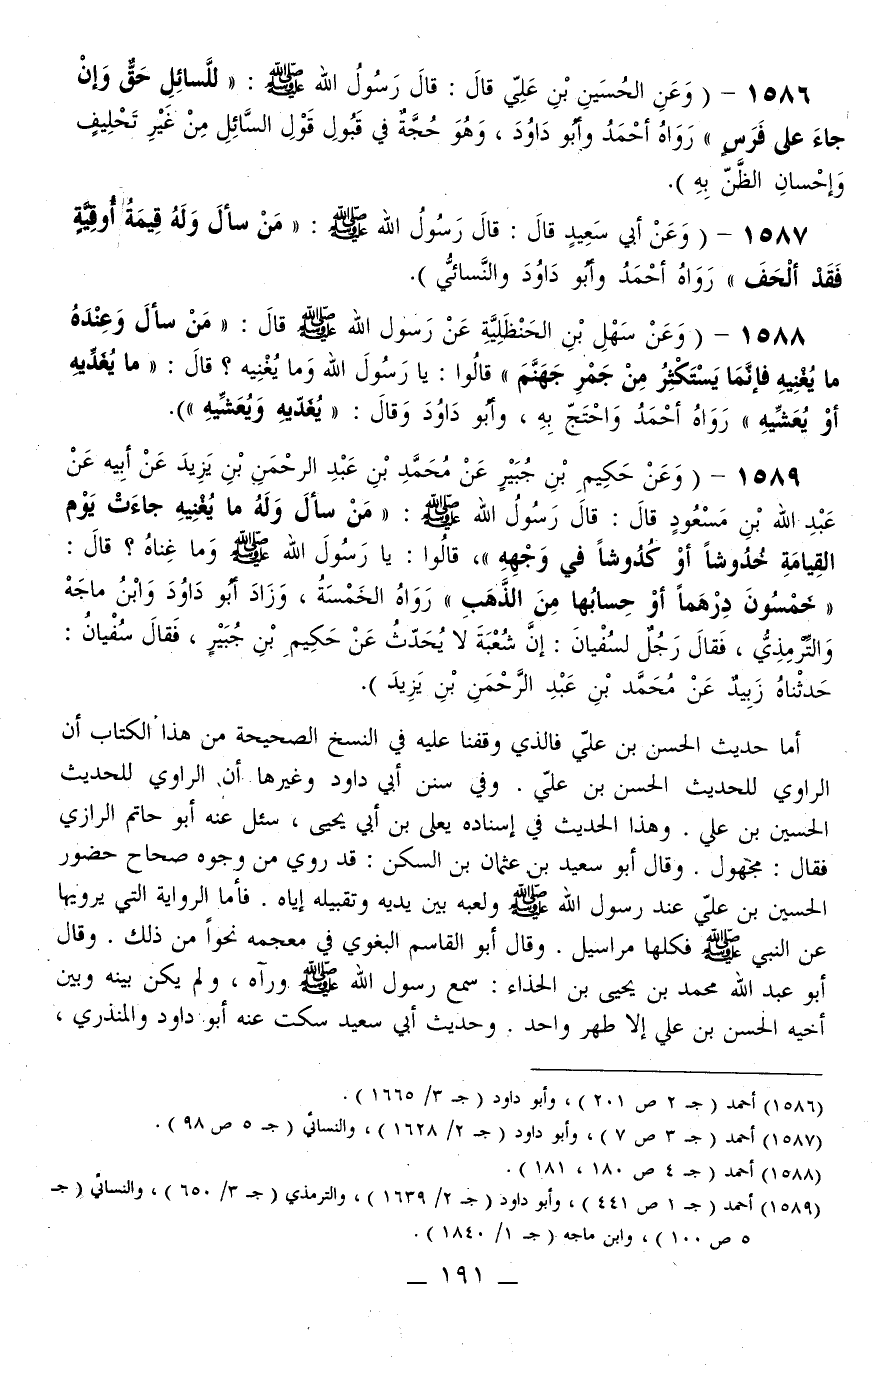 ١٥٨٦ – ( وَعَنِ الحُسَينِ بْنِ عَلِيّ قالَ : قالَ رَسُولُ الله ﷺ : « للَّسائِلِ حَقٌّ وَإِنْ
جاءَ على فَرَسٍ » رَوَاهُ أحْمَدُ وأَبُو دَاوُدَ ، وَهُوَ حُجَّةٌ في قَبُولِ قَوْلِ السَّائِلِ مِنْ غَيْرِ تَحْلِيفٍ
وَإحْسانِ الظَّنّ بِهِ ).
١٥٨٧ – ( وَعَنْ أبي سَعِيدٍ قالَ : قالَ رَسُولُ الله ﷺ : « مَنْ سألَ وَلَهُ قِيمَةُ أُوقِيَّةٍ
فَقَدْ ألْحَفَ » رَوَاهُ أحْمَدُ وأَبُو دَاوُدَ والنَّسائيُّ ).
١٥٨٨ – ( وَعَنْ سَهْلِ بْنِ الحَنْظَلِيَّةِ عَنْ رَسول الله ﷺ قالَ : « مَنْ سألَ وَعِنْدَهُ
ما يُغْنِيهِ فإنَّمَا يَسْتَكْثِرُ مِنْ جَمْرِ جَهَنَّمَ » قالُوا : يا رَسُولَ الله وَما يُغْنِيه ؟ قالَ : « ما يُغَدِّيهِ
أوْ يُعَشِّيهِ » رَوَاهُ أحْمَدُ وَاحْتَجّ بِهِ ، وأبُو دَاوُدَ وَقالَ : « يُغَدّيهِ وَيُعَشِّيهِ »).
١٥٨٩ – ( وَعَنْ حَكِيمِ بْنِ جُبَيْرٍ عَنْ مُحَمَّدِ بْنِ عَبْدِ الرحْمَنِ بْنِ يَزِيدَ عَنْ أبيه عَنْ
عَبْدِ الله بْنِ مَسْعُودٍ قالَ : قالَ رَسُولُ الله ﷺ : « مَنْ سألَ وَلَهُ ما يُغْنِيهِ جاءَتْ يَوْمِ
القِيامَةِ خُدُوشاً أوْ كُدُوشاً في وَجْهِهِ »، قالُوا : يا رَسُولَ الله ﷺ وَما غِناهُ ؟ قالَ :
« خَمْسُونَ دِرْهَماً أوْ حِسابُها مِنَ الذَّهَبِ » رَوَاهُ الخَمْسَةُ ، وَزَادَ أبُو دَاوُدَ وَابْنُ ماجَهْ
وَالتِّرْمِذِيُّ ، فَقالَ رَجُلٌ لسُفْيانَ : إنَّ شُعْبَةَ لا يُحَدّثُ عَنْ حَكِيمِ بْنِ جُبَيْرٍ ، فَقالَ سُفْيانُ :
حَدثْناهُ زَبِيدٌ عَنْ مُحَمَّد بْنِ عَبْدِ الرَّحْمَنِ بْنِ يَزِيدَ ).
أما حديث الحسن بن عليّ فالذي وقفنا عليه في النسخ الصحيحة من هذا الكتاب أن
الراوي للحديث الحسن بن عليّ . وفي سنن أبي داود وغيرها أن الراوي للحديث
الحسين بن علي . وهذا الحديث في إسناده يعلى بن أبي يحيى ، سئل عنه أبو حاتم الرازي
فقال : مجهول . وقال أبو سعيد بن عثمان بن السكن : قد روي من وجوه صحاح حضور
الحسين بن عليّ عند رسول الله ﷺ ولعبه بين يديه وتقبيله إياه . فأما الرواية التي يرويها
عن النبي ﷺ فكلها مراسيل . وقال أبو القاسم البغوي في معجمه نحواً من ذلك . وقال
أبو عبد الله محمد بن يحيى بن الحذاء : سمع رسول الله ﷺ ورآه ، ولم يكن بينه وبين
أخيه الحسن بن علي إلا طهر واحد . وحديث أبي سعيد سكت عنه أبو داود والمنذري ،
(١٥٨٦) أحمد ( جـ ٢ ص ٢٠١ ) ، وأبو داود ( جـ ٣/ ١٦٦٥ ) .
(١٥٨٧) أحمد ( جـ ٣ ص ٧ ) ، وأبو داود ( جـ ٢/ ١٦٢٨ ) ، والنسائي ( جـ ٥ ص ٩٨ ) .
(١٥٨٨) أحمد ( جـ ٤ ص ١٨٠ ، ١٨١ ) .
(١٥٨٩) أحمد ( جـ ١ ص ٤٤١ ) ، وأبو داود ( جـ ٢/ ١٦٣٩ ) ، والترمذي ( جـ ٣/ ٦٥٠ ) ، والنسائي ( جـ
٥ ص ١٠٠ ) ، وابن ماجه ( جـ ١/ ١٨٤٠ ) .
— ١٩١ —